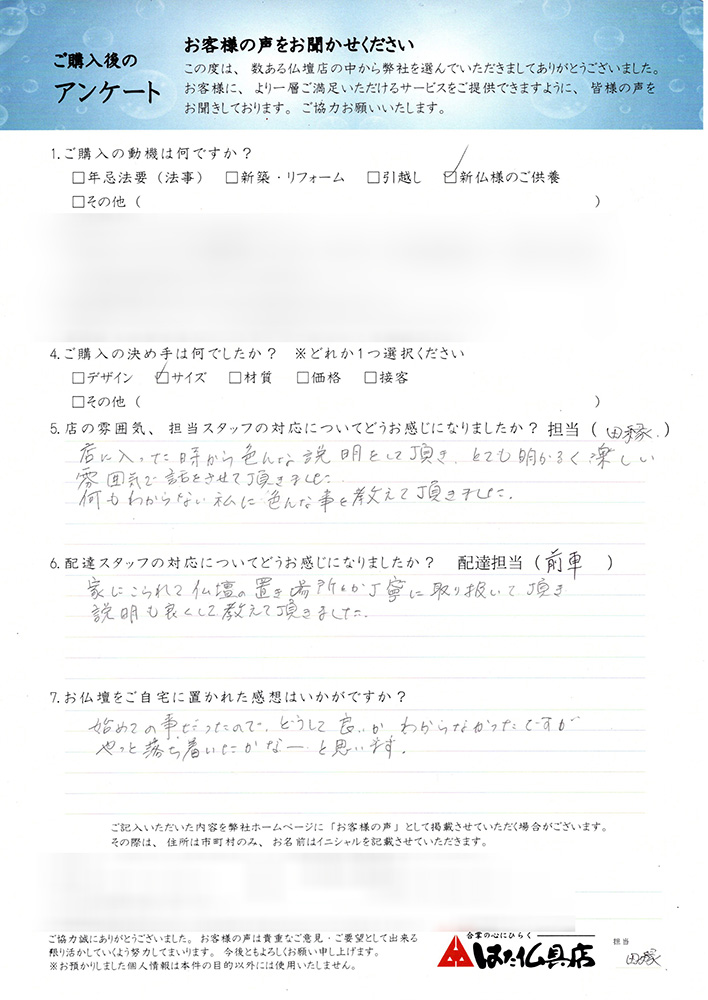 ご購入後の
アンケート
お客様の声をお聞かせください
この度は、数ある仏壇店の中から弊社を選んでいただきましてありがとうございました。
お客様に、より一層ご満足いただけるサービスをご提供できますように、皆様の声を
お聞きしております。ご協力お願いいたします。
1.ご購入の動機は何ですか？
□年忌法要（法事） □新築・リフォーム □引越し ☑新仏様のご供養
□その他（ ）
4.ご購入の決め手は何でしたか？ ※どれか1つ選択ください
□デザイン ☑サイズ □材質 □価格 □接客
□その他（ ）
5.店の雰囲気、担当スタッフの対応についてどうお感じになりましたか？ 担当（田縁）
店に入った時から色んな説明をして頂き、とても明かるく楽しい
雰囲気で話をさせて頂きました
何もわからない私に色んな事を教えて頂きました.
6.配達スタッフの対応についてどうお感じになりましたか？ 配達担当（前車）
家にこられて仏壇の置き場所もが丁寧に取り扱いて頂き
説明も良くして教えて頂きました.
7.お仏壇をご自宅に置かれた感想はいかがですか？
始めての事だったので、どうして良いか、わからなかったですが
やっと落ち着いたかなーと思います.
ご記入いただいた内容を弊社ホームページに「お客様の声」として掲載させていただく場合がございます。
その際は、住所は市町村のみ、お名前はイニシャルを記載させていただきます。
ご協力誠にありがとうございました。お客様の声は貴重なご意見・ご要望として出来る
限り活かしていくよう努力してまいります。今後ともよろしくお願い申し上げます。
※お預かりしました個人情報は本件の目的以外には使用いたしません。
合掌の心にひらく
はた仏具店
担当
田縁